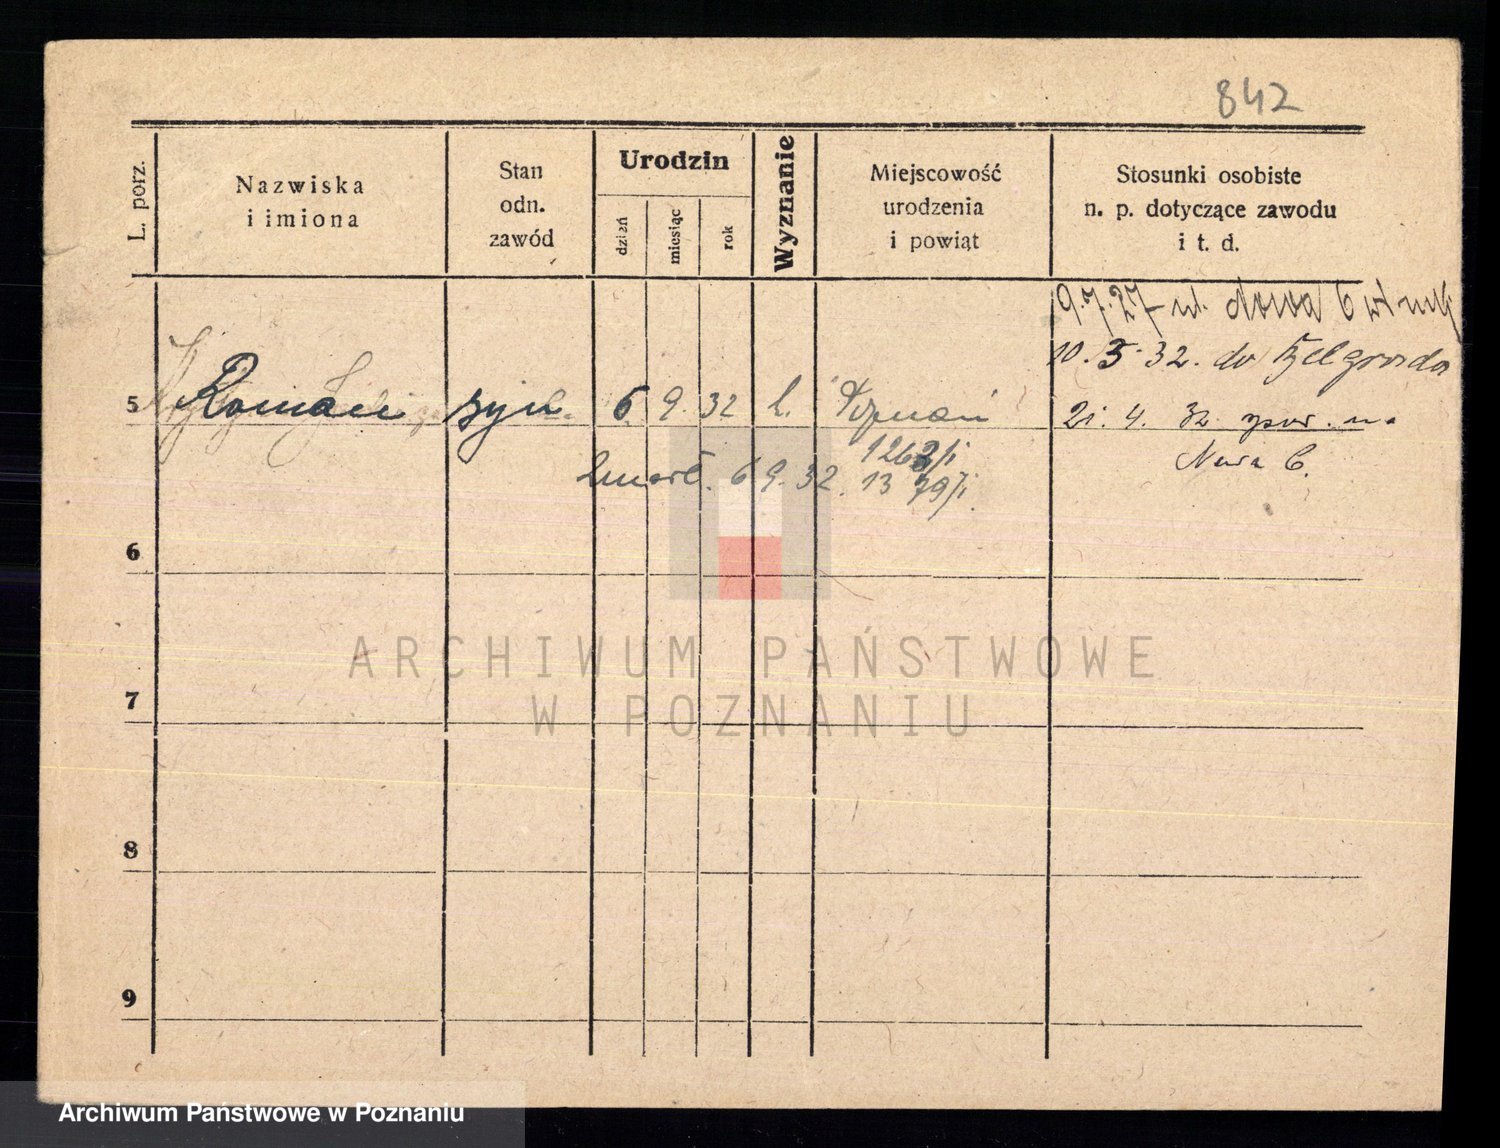 842
L. porz.
Nazwiska
i imiona
Stan
odn.
zawód
Urodzin
dzień
miesiąc
rok
Wyznanie
Miejscowość
urodzenia
i powiąt
Stosunki osobiste
n. p. dotyczące zawodu
i t. d.
19.7.27 ul. Nowa 6
10.5.32. do Belgarda
5 Roman syn 6. 9. 32 k. Poznań 21. 4. 32
1263/i Nowa 6.
zmarł. 6 9. 32. 13 79/i.
6
7
8
9
ARCHIWUM PAŃSTWOWE
W POZNANIU
Archiwum Państwowe w Poznaniu